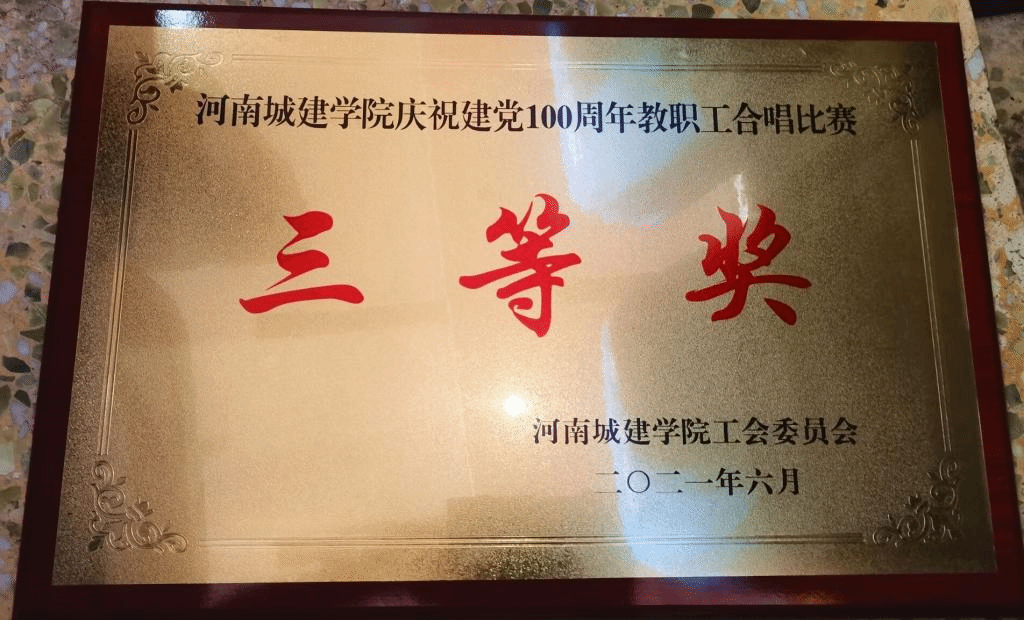 河南城建学院庆祝建党100周年教职工合唱比赛
三等奖
河南城建学院工会委员会
二〇二一年六月